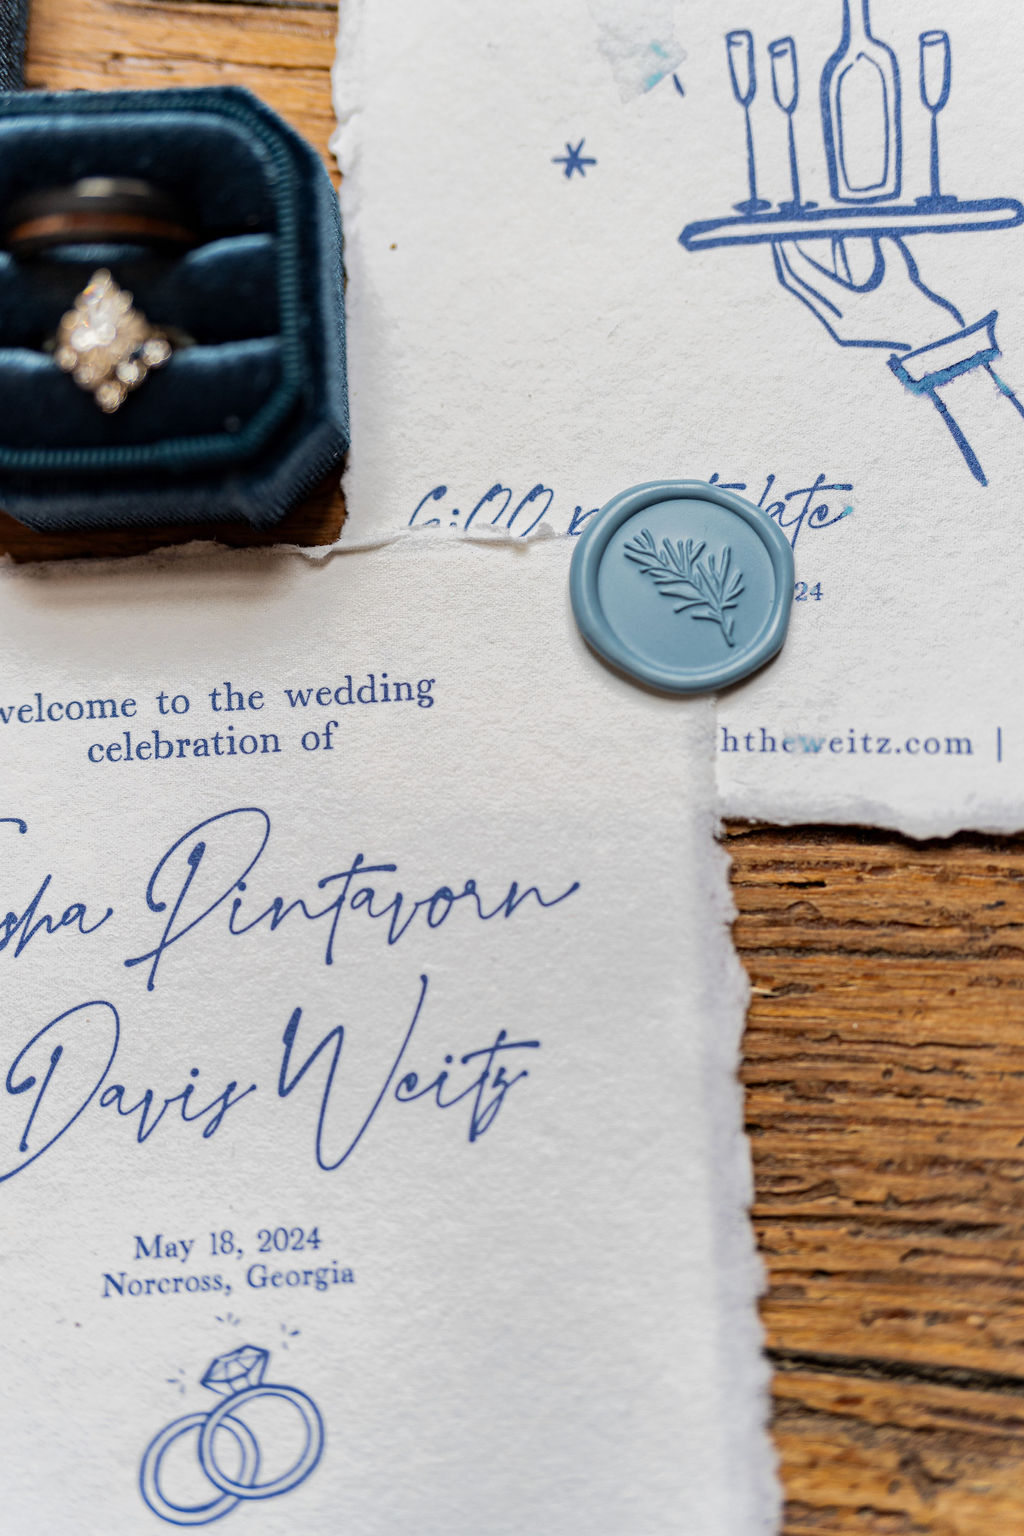 6:00
24
htheweitz.com |
welcome to the wedding
celebration of
Pintavorn
Davis Weitz
May 18, 2024
Norcross, Georgia